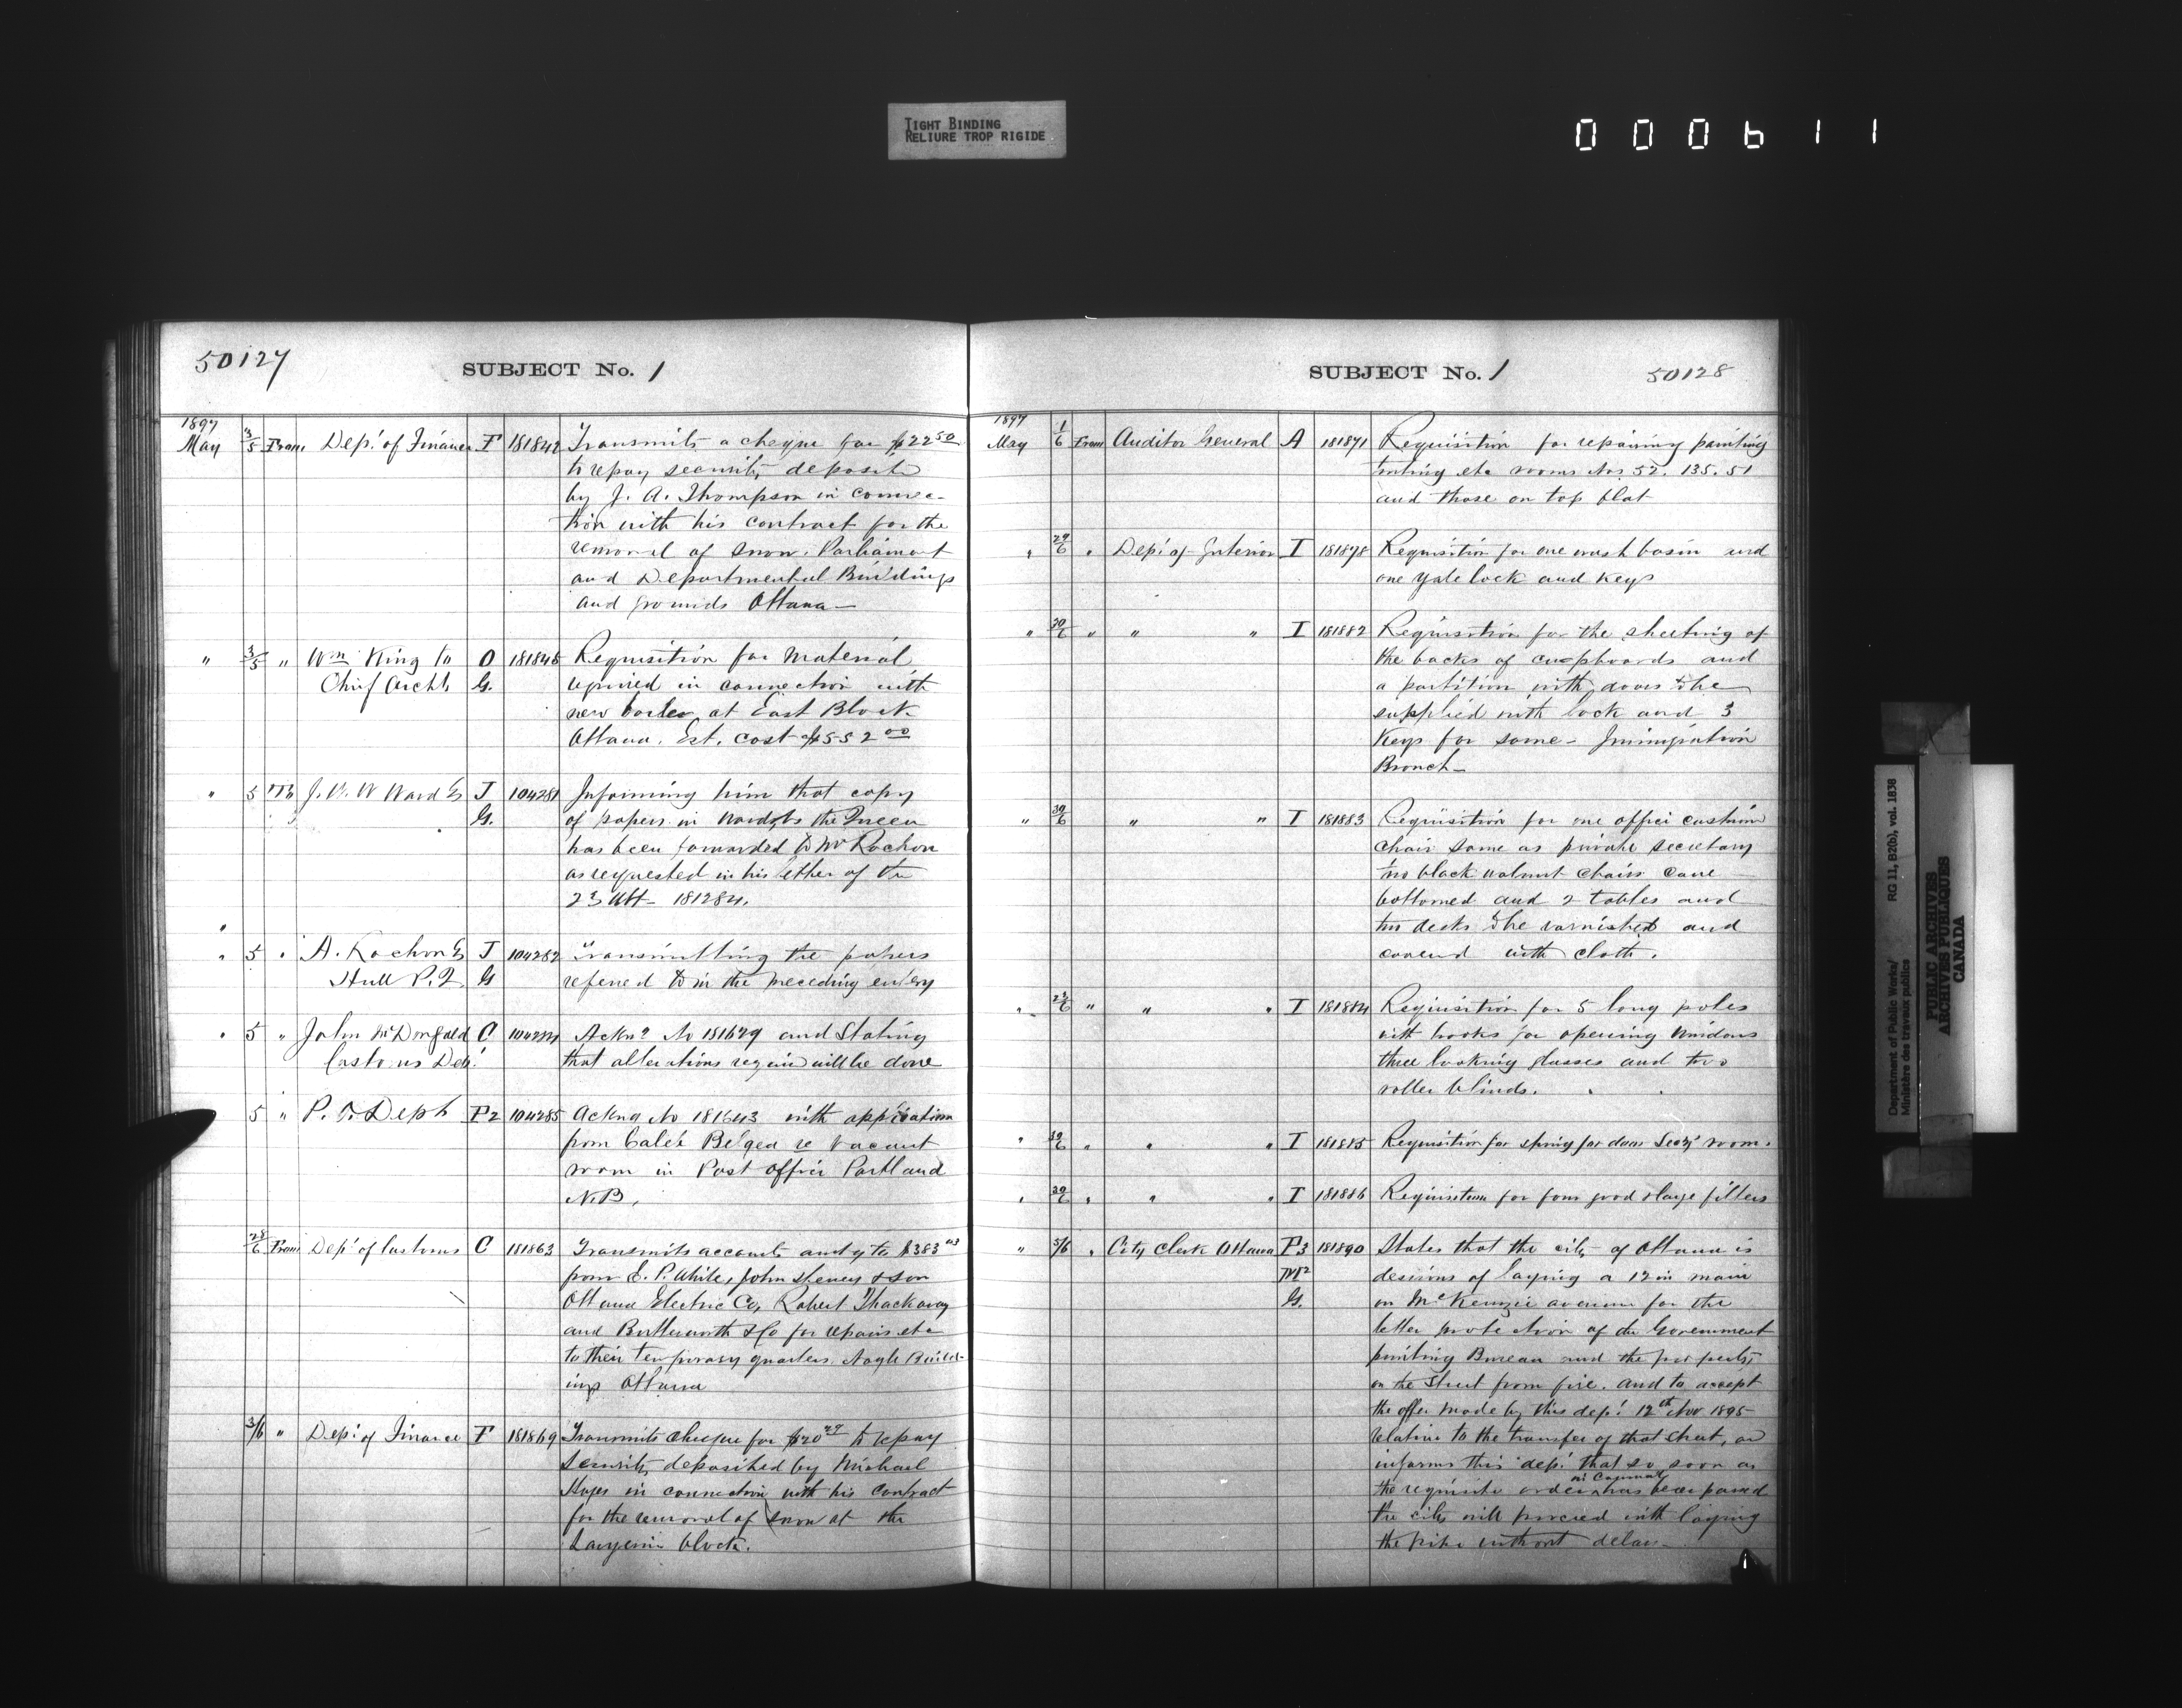 TIGHT BINDING
RELIURE TROP RIGIDE
000611
50127
SUBJECT No. 1
1897
May 3/5 From Dep.t of Finance F 181842 Transmits a cheque for $22 50
to repay security deposit
by J. A. Thompson in connec-
tion with his contract for the
removal of snow. Parliament
and Departmental Buildings
and grounds Ottawa—
" 3/5 " Wm King to O 181845 Requisition for material
Chief Archt G. required in connection with
new boiler at East Block
Ottawa. Est. cost $552 00
" 5 To Ward J 104281 Informing him that copy
G. of papers in Ward vs the Queen
has been forwarded to Mr Rochon
as requested in his letter of the
23 Ult— 181284.
" 5 " A. Rochon J 104282 Transmitting the papers
Hull P.Q. G referred to in the preceding entery
" 5 " John McDougald C Ackn.g No 181679 and Stating
Customs Dep.t that alterations will be done
5 " P. O. Dept P2 104285 Ackng No 181643 with application
from Caleb Belyea re vacant
room in Post office Portland
N.B.
28/6 From Dep.t of Customs C 181863 Transmits accounts amtg to $383
from E. P. White, John & Son
Ottawa Electric Co, Robert Thackaray
and Butterworth & Co for repairs etc
to their temporary quarters Nagle Build-
ings Ottawa
3/6 " Dep.t of Finance F 181869 Transmits cheque for $20 to repay
security deposited by Michael
in connection with his contract
for the removal of snow at the
Langevin block.
SUBJECT No. 1
50128
1897
May 1/6 From Auditor General A 181871 Requisition for repairing painting
tinting etc rooms Nos 52. 135. 51
and those on top flat
" 29/6 " Dep.t of Interior I 181878 Requisition for one wash basin and
one Yale lock and keys
" 30/6 " " " I 181882 Requisition for the sheeting of
the backs of cupboards and
a partition with doors to be
supplied with lock and 3
Keys for same— Immigration
Branch—
" 30/6 " " I 181883 Requisition for one office cushion
chair same as private secretary
two black walnut chairs cane
bottomed and 2 tables and
two desks to be varnished and
covered with cloth.
" " " " I 181884 Requisition for 5 long poles
with hooks for opening windows
three looking glasses and two
roller blinds.
" 30/6 " " " I 181885 Requisition for spring for door Secy's room.
" 30/6 " " " I 181886 Requisition for four good large filters
" 5/6 " City Clerk Ottawa P3 181890 States that the city of Ottawa is
M2 desirous of laying a 12 in main
G. on McKenzie avenue for the
better protection of the Government
printing Bureau and the property
on the street from fire. and to accept
the offer made by this dep.t 12th Nov 1895
relative to the transfer of that street, and
informs this dep.t that so soon as
the requisite order in Council has been passed
the city will proceed with laying
the pipe without delay—
Department of Public Works/ RG 11, B2(b), vol. 1838
Ministère des travaux publics
PUBLIC ARCHIVES
ARCHIVES PUBLIQUES
CANADA